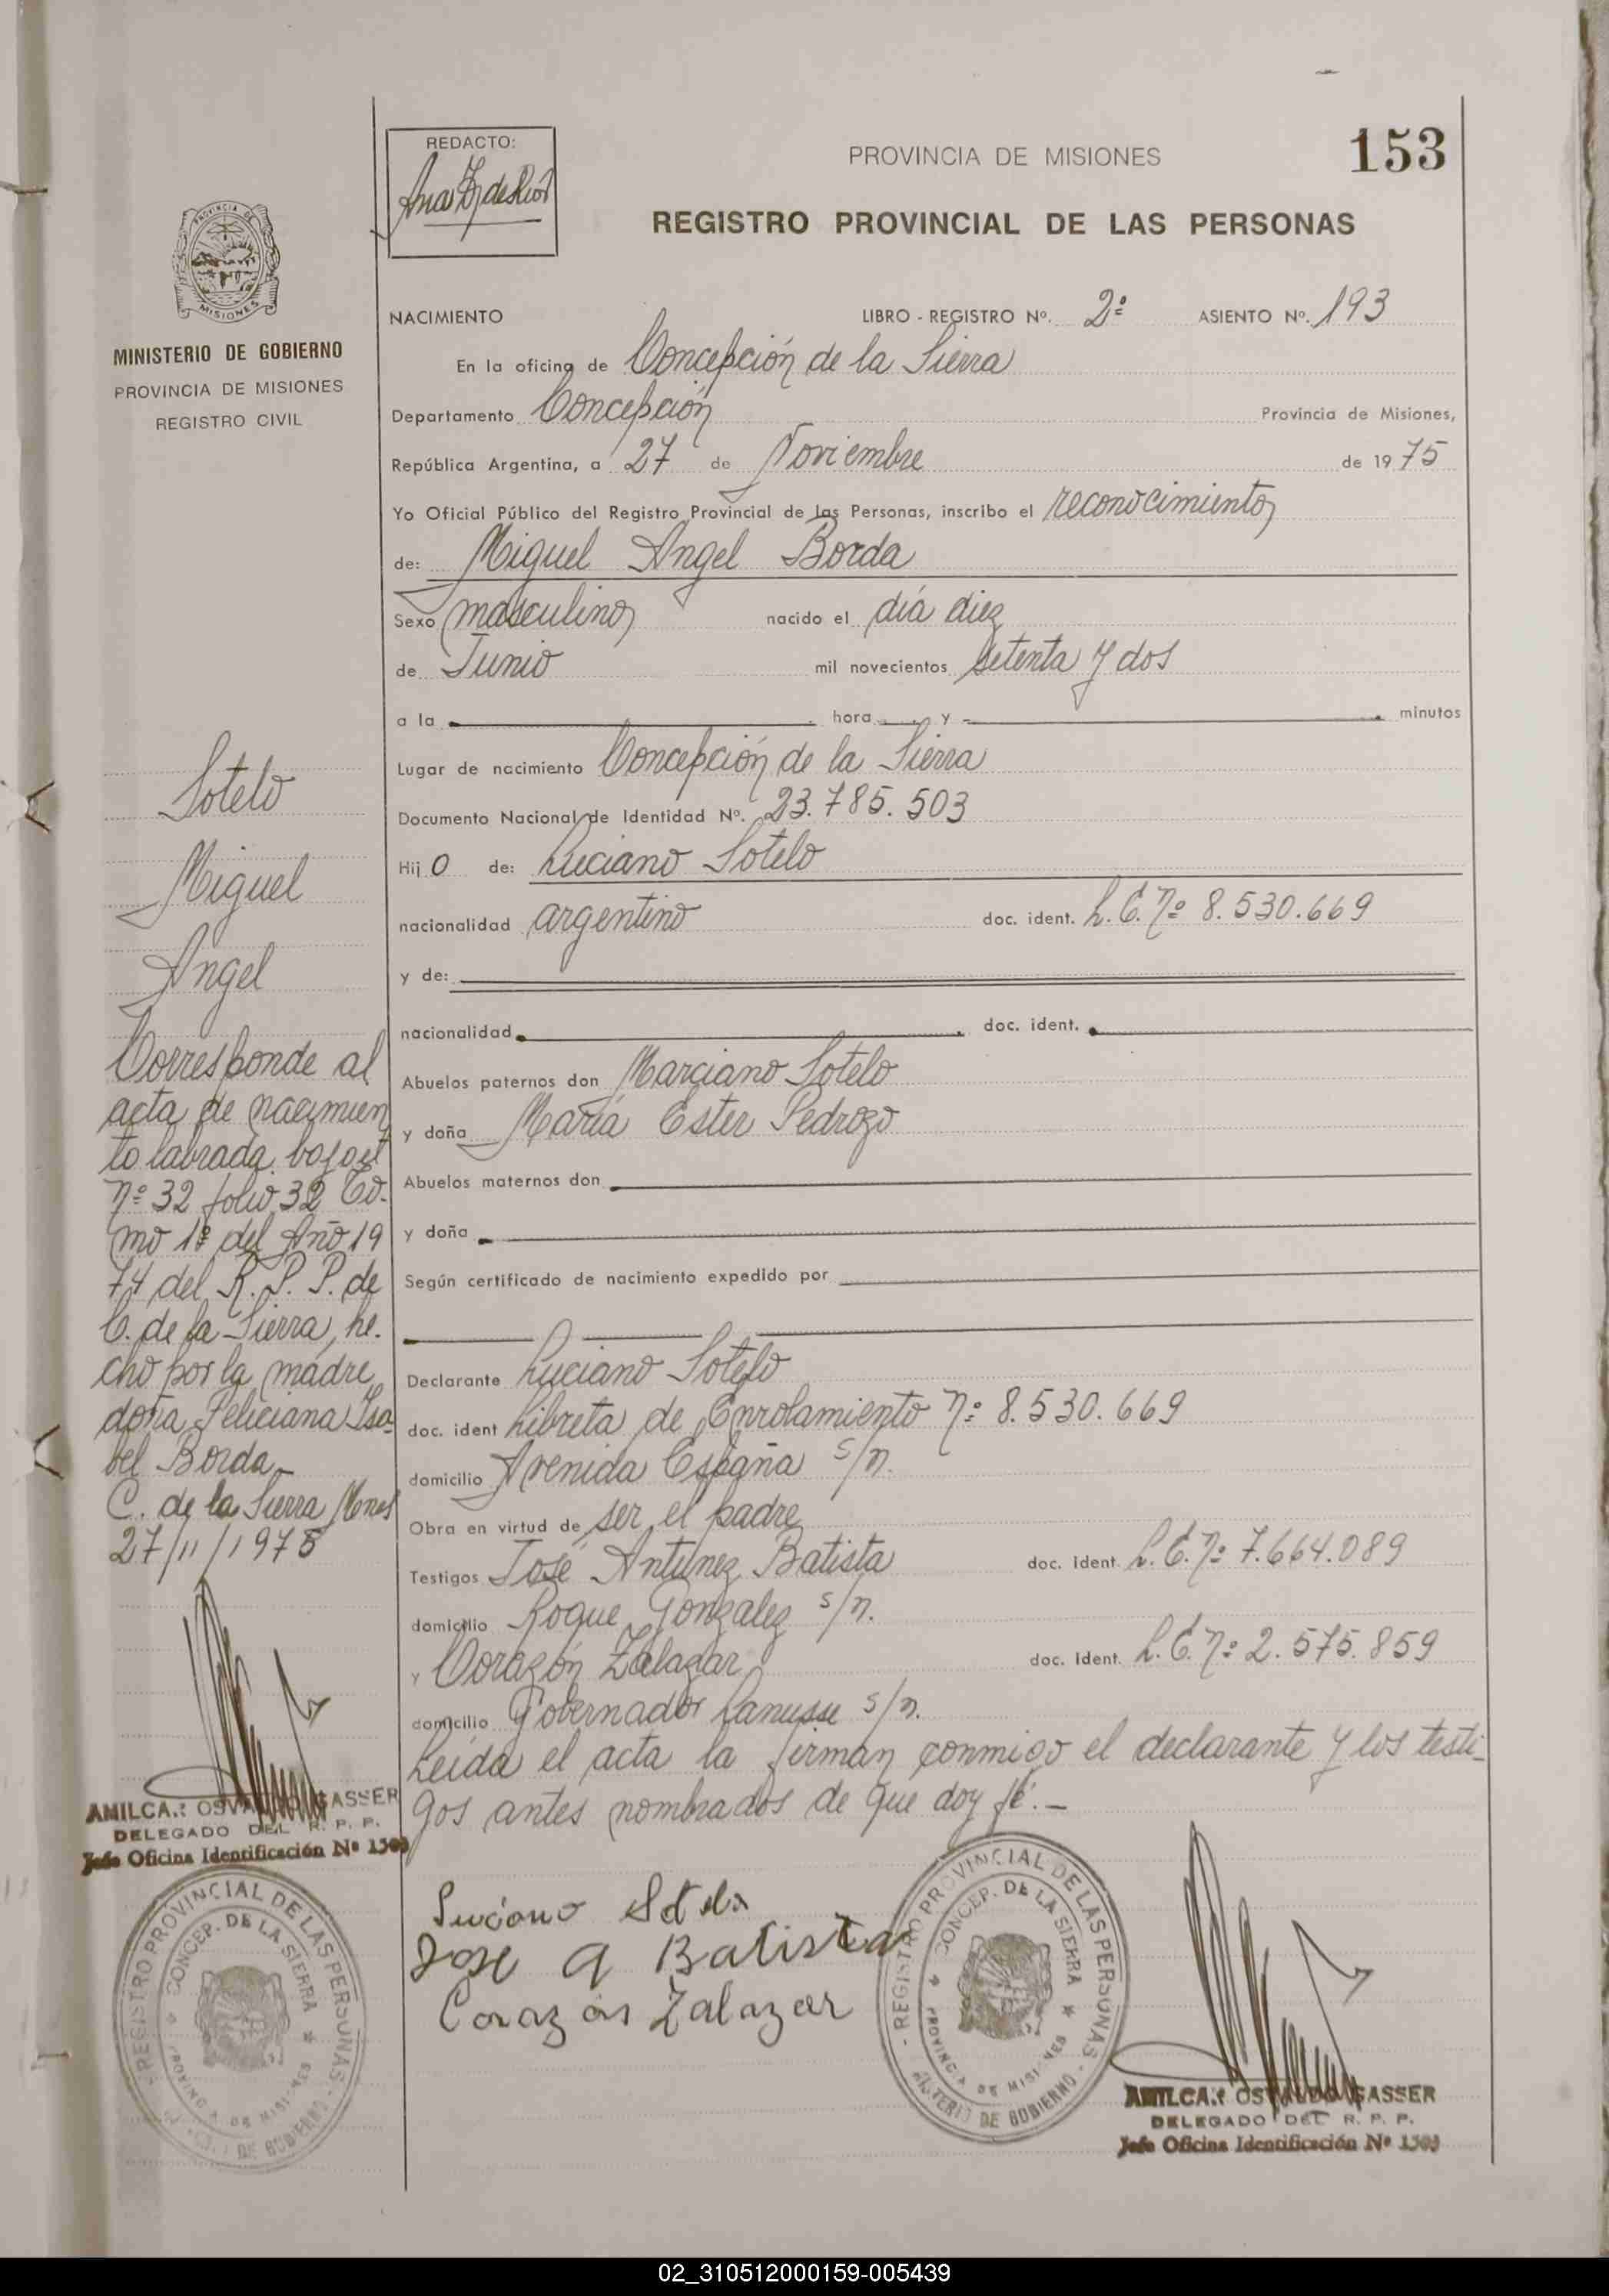 153
REDACTO:
PROVINCIA DE MISIONES
REGISTRO PROVINCIAL DE LAS PERSONAS
MISIONES
MINISTERIO DE GOBIERNO
PROVINCIA DE MISIONES
REGISTRO CIVIL
NACIMIENTO LIBRO - REGISTRO Nº. 2º ASIENTO Nº. 193
En la oficina de Concepción de la Sierra
Departamento Concepción Provincia de Misiones,
República Argentina, a 27 de Noviembre de 1975
Yo Oficial Público del Registro Provincial de las Personas, inscribo el reconocimiento
de: Miguel Angel Borda
Sexo masculino nacido el día diez
de Junio mil novecientos setenta y dos
a la hora y minutos
Lugar de nacimiento Concepción de la Sierra
Documento Nacional de Identidad Nº. 23.785.503
Hij o de: Luciano Sotelo
nacionalidad argentino doc. ident. L.E. Nº 8.530.669
y de:
nacionalidad doc. ident.
Abuelos paternos don Marciano Sotelo
y doña María Ester Pedrozo
Abuelos maternos don
y doña
Según certificado de nacimiento expedido por
Declarante Luciano Sotelo
doc. ident Libreta de Enrolamiento Nº 8.530.669
domicilio Avenida España s/n.
Obra en virtud de ser el padre
Testigos José Antunez Batista doc. ident. L.E. Nº 7.664.089
domicilio Roque Gonzalez s/n.
y Corazón Zalazar doc. ident. L.E. Nº 2.575.859
domicilio Gobernador Lanusse s/n.
Leída el acta la firman conmigo el declarante y los testi-
gos antes nombrados de que doy fé.-
Sotelo
Miguel
Angel
Corresponde al
acta de nacimien
to labrada bajo el
Nº 32 folio 32 To-
mo 1º del Año 19
74 del R. P. P. de
C. de la Sierra, he-
cho por la madre
doña Feliciana Isa-
bel Borda.
C. de la Sierra Mnes
27/11/1975
AMILCAR OSVALDO GASSER
DELEGADO DEL R. P. P.
Jefe Oficina Identificación Nº 1503
REGISTRO PROVINCIAL DE LAS PERSONAS
CONCEP. DE LA SIERRA
PROVINCIA DE MISIONES
DE GOBIERNO
Luciano Sotelo
Jose A Batista
Corazon Zalazar
REGISTRO PROVINCIAL DE LAS PERSONAS
CONCEP. DE LA SIERRA
PROVINCIA DE MISIONES
MINISTERIO DE GOBIERNO
AMILCAR OSVALDO GASSER
DELEGADO DEL R. P. P.
Jefe Oficina Identificación Nº 1503
02_310512000159-005439